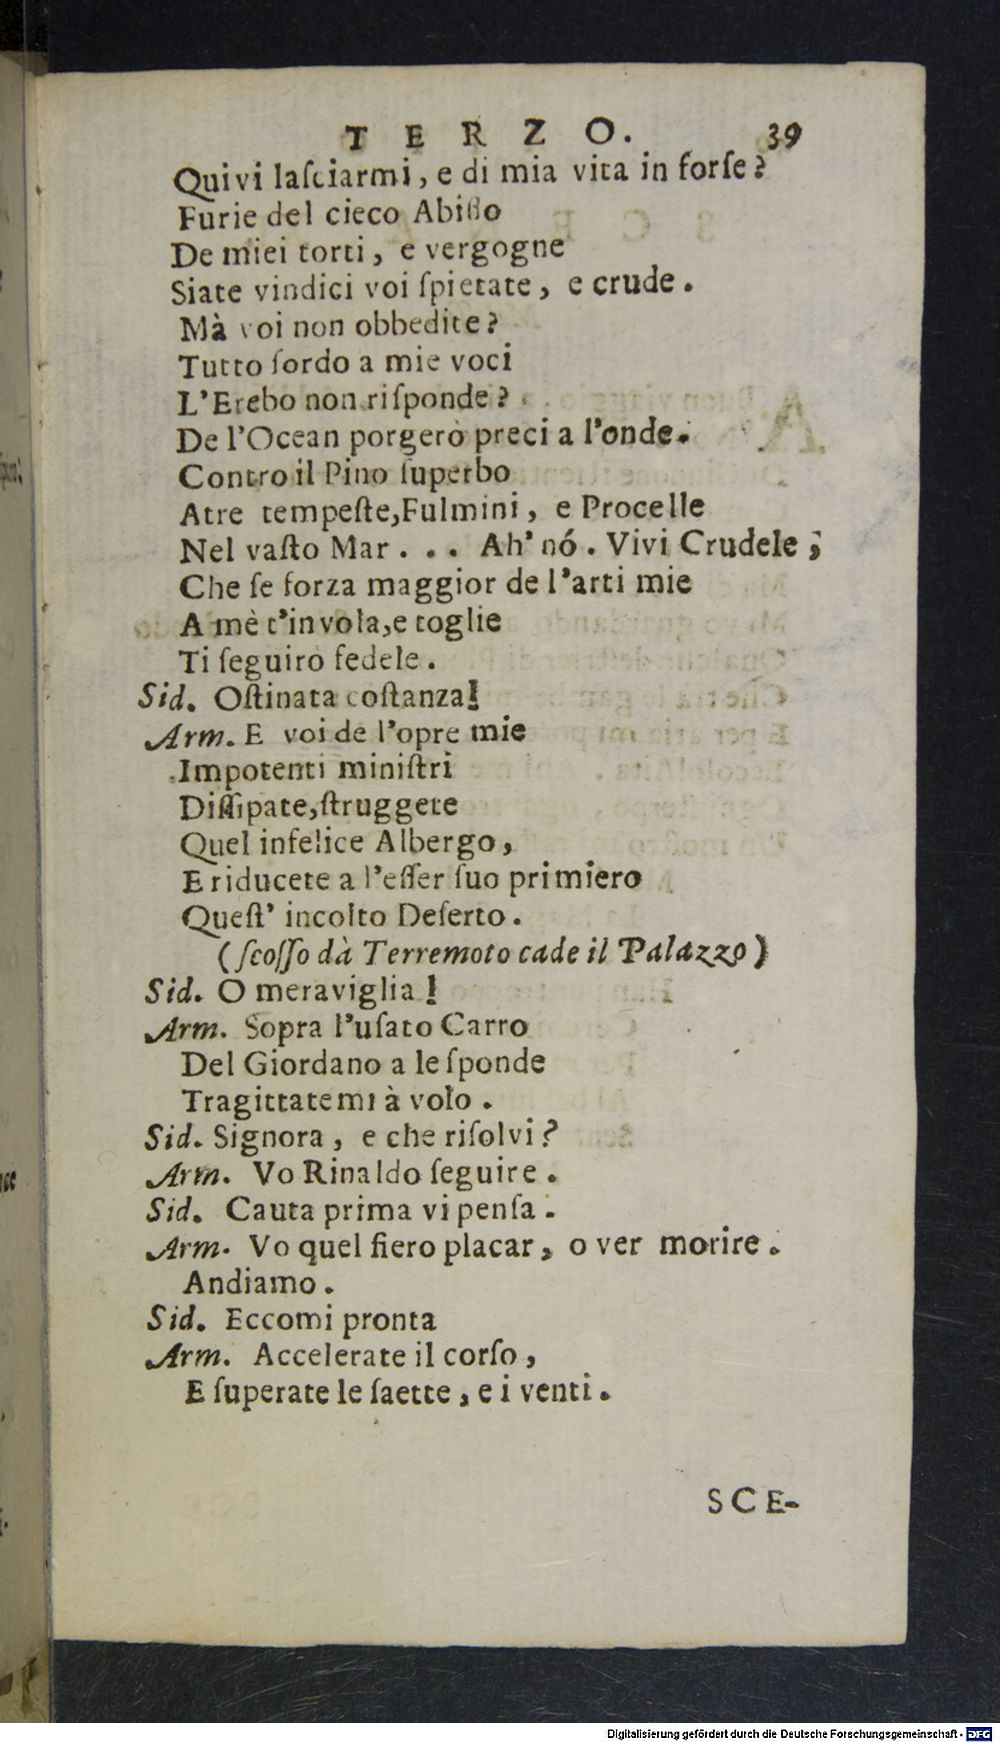 TERZO. 39
Quivi laſciarmi, e di mia vita in forſe?
Furie del cieco Abiſſo
De miei torti, e vergogne
Siate vindici voi ſpietate, e crude.
Mà voi non obbedite?
Tutto ſordo a mie voci
L'Erebo non riſponde?
De l'Ocean porgerò preci a l'onde.
Contro il Pino ſuperbo
Atre tempeſte, Fulmini, e Procelle
Nel vaſto Mar... Ah' nó. Vivi Crudele;
Che ſe forza maggior de l'arti mie
A mè t'invola, e toglie
Ti ſeguirò fedele.
Sid. Oſtinata coſtanza!
Arm. E voi de l'opre mie
Impotenti miniſtri
Diſſipate, ſtruggete
Quel infelice Albergo,
E riducete a l'eſſer ſuo primiero
Queſt' incolto Deſerto.
(ſcoſſo dà Terremoto cade il Palazzo)
Sid. O meraviglia!
Arm. Sopra l'uſato Carro
Del Giordano a le ſponde
Tragittatemi à volo.
Sid. Signora, e che riſolvi?
Arm. Vo Rinaldo ſeguire.
Sid. Cauta prima vi penſa.
Arm. Vo quel fiero placar, o ver morire.
Andiamo.
Sid. Eccomi pronta
Arm. Accelerate il corſo,
E ſuperate le ſaette, e i venti.
SCE-
Digitalisierung gefördert durch die Deutsche Forschungsgemeinschaft - DFG